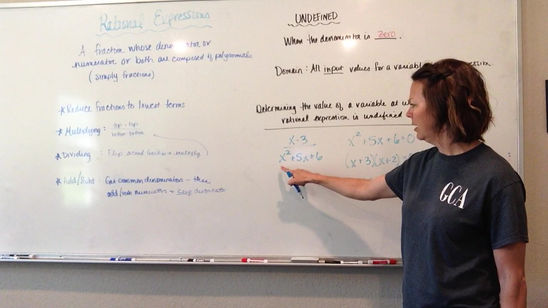 Rational Expressions
A fraction whose denominator or
numerator or both are composed of polynomials
(simply fractions)
* Reduce fractions to lowest terms
* Multiplying: top · top
bottom · bottom
* Dividing: (Flip second fraction + multiply)
* Add/Subt: Get common denominators - then
add/sub numerators + keep denominator
UNDEFINED
When the denominator is zero.
Domain: All input values for a variable expression
Determining the value of a variable at
rational expression is undefined
x-3
x²+5x+6
x²+5x+6=0
(x+3)(x+2)
GCA